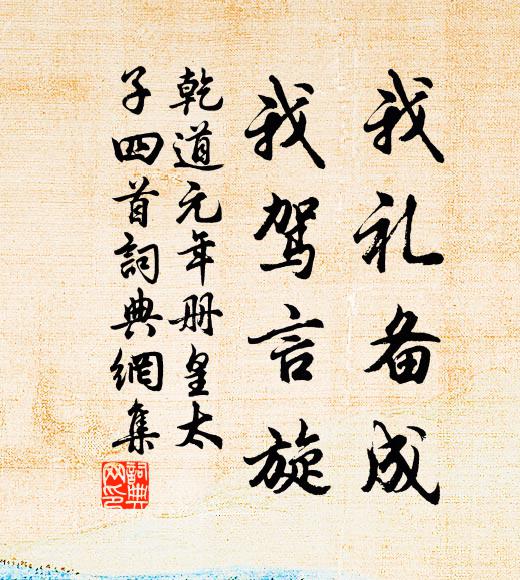 我礼备成
我驾言旋
乾道元年册皇太
子四首詞典網集
詞典网印